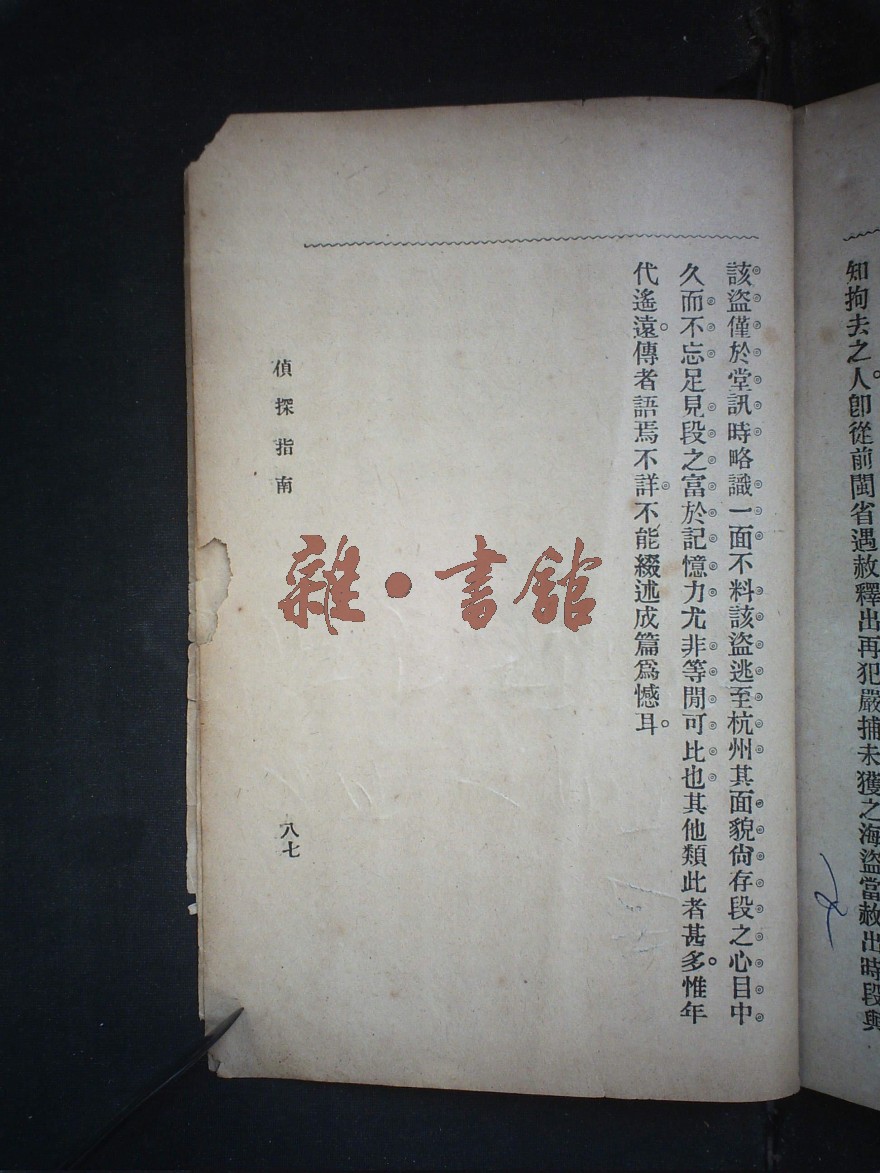 知拘去之人。卽從前閩省遇赦釋出再犯嚴捕未獲之海盜當赦出時段與
該盜僅於堂訊時略識一面不料該盜逃至杭州其面貌尙存段之心目中
久而不忘足見段之富於記憶力尤非等閒可比也其他類此者甚多。惟年
代遙遠。傳者語焉不詳。不能綴述成篇爲憾耳。
偵探指南
八七
雜·書館